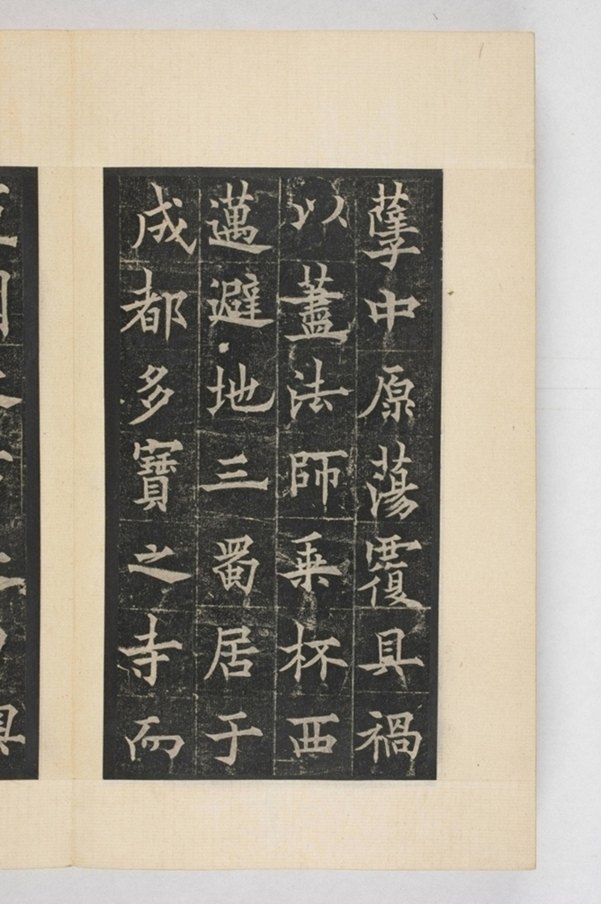 孽中原蕩覆具禍
以藎法師乗杯西
邁避地三蜀居于
成都多寶之寺而